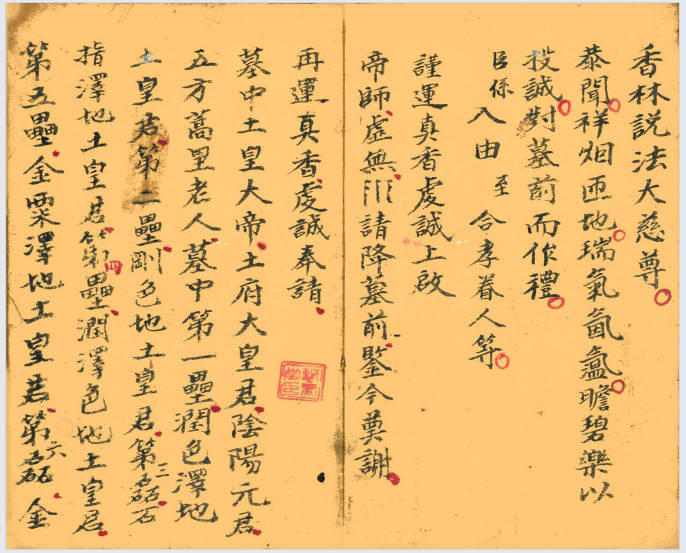 香林説法大慈尊
恭聞祥烟匝地瑞氣氤氳瞻碧樂以
投誠對墓前而作禮
臣係 入由 至 合孝眷人等
謹運真香虔誠上啟
帝師虛無 請降墓前鑒今奠謝
再運真香虔誠奉請
墓中土皇大帝土府大皇君陰陽元君
五方蒿里老人墓中第一壘潤色澤地
土皇君第二壘剛色地土皇君第三磊石
指澤地土皇君第四壘潤澤色地土皇君
第五壘金粟澤地土皇君第六磊金